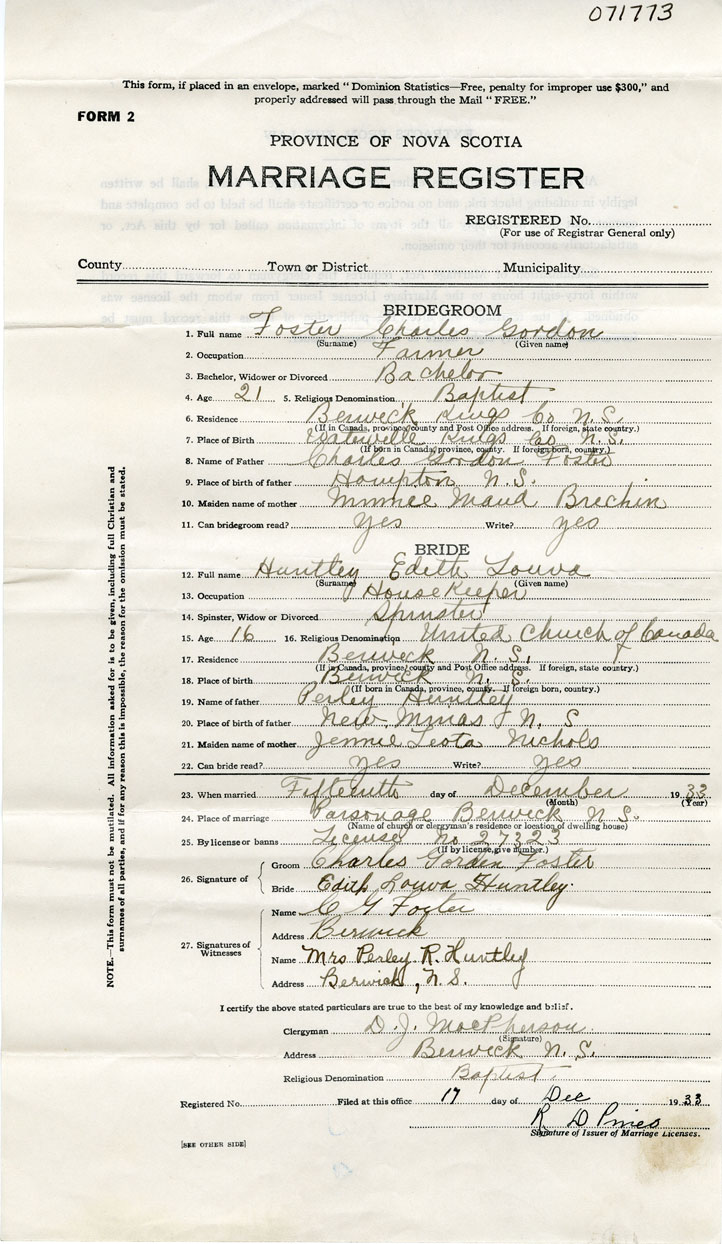 071773
This form, if placed in an envelope, marked "Dominion Statistics—Free, penalty for improper use $300," and
properly addressed will pass through the Mail "FREE."
FORM 2
PROVINCE OF NOVA SCOTIA
MARRIAGE REGISTER
REGISTERED No.
(For use of Registrar General only)
County Town or District Municipality
BRIDEGROOM
1. Full name Foster Charles Gordon
(Surname) (Given name)
2. Occupation Farmer
3. Bachelor, Widower or Divorced Bachelor
4. Age 21 5. Religious Denomination Baptist
6. Residence Berwick Kings Co N.S.
(If in Canada, province, county and Post Office address. If foreign, state country.)
7. Place of Birth Kings Co N.S.
(If born in Canada, province, county. If foreign born, country.)
8. Name of Father Charles Gordon Foster
9. Place of birth of father Hampton N.S.
10. Maiden name of mother Minnee Maud Brechin
11. Can bridegroom read? Yes Write? yes
BRIDE
12. Full name Huntley Edith Louva
(Surname) (Given name)
13. Occupation HouseKeeper
14. Spinster, Widow or Divorced Spinster
15. Age 16 16. Religious Denomination United Church of Canada
17. Residence Berwick N.S.
(If in Canada, province, county and Post Office address. If foreign, state country.)
18. Place of birth Berwick N.S.
(If born in Canada, province, county. If foreign born, country.)
19. Name of father Perley Huntley
20. Place of birth of father New Minas N.S
21. Maiden name of mother Jennie Leota Nichols
22. Can bride read? yes Write? yes
23. When married Fifteenth day of December 1933
(Month) (Year)
24. Place of marriage Parsonage Berwick N.S.
(Name of church or clergyman's residence or location of dwelling house)
25. By license or banns License No 27323
(If by license, give number.)
26. Signature of
Groom Charles Gorden Foster
Bride Edith Louva Huntley.
27. Signatures of Witnesses
Name C G Foster
Address Berwick
Name Mrs Perley R. Huntley
Address Berwick, N.S.
I certify the above stated particulars are true to the best of my knowledge and belief.
Clergyman D. J. MacPherson
(Signature)
Address Berwick N.S.
Religious Denomination Baptist.
Registered No. Filed at this office 17 day of Dec 1933
R D
Signature of Issuer of Marriage Licenses.
[SEE OTHER SIDE]
NOTE.—This form must not be mutilated. All information asked for is to be given, including full Christian and
surnames of all parties, and if for any reason this is impossible, the reason for the omission must be stated.